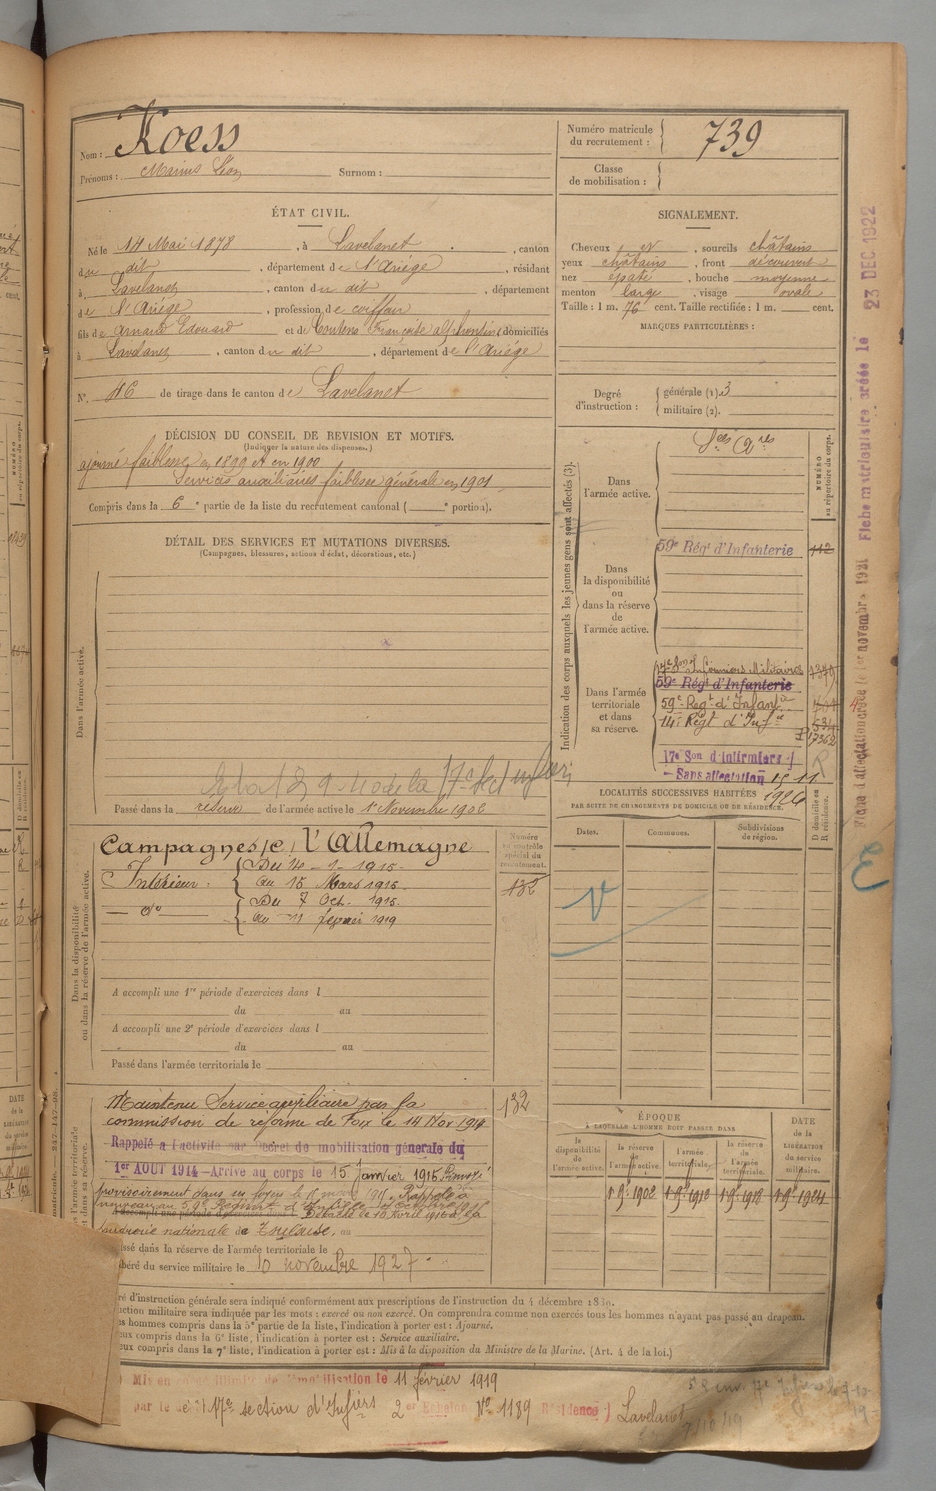 Nom : Koess
Prénoms : Marius Léon Surnom :
Numéro matricule du recrutement : 739
Classe de mobilisation :
ÉTAT CIVIL.
Né le 14 Mai 1878, à Lavelanet, canton
du dit, département de l'Ariége, résidant
à Lavelanet, canton du dit, département
de l'Ariége, profession de coiffeur
fils de Arnaud Edouard et de Françoise domiciliés
à Lavelanet, canton du dit, département de l'Ariége
N° 46 de tirage dans le canton de Lavelanet
SIGNALEMENT.
Cheveux et, sourcils châtains
yeux châtains, front découvert
nez épaté, bouche moyenne
menton large, visage ovale
Taille : 1 m. 76 cent. Taille rectifiée : 1 m. cent.
MARQUES PARTICULIÈRES :
Degré d'instruction : générale (1) 3
militaire (2).
DÉCISION DU CONSEIL DE REVISION ET MOTIFS.
(Indiquer la nature des dispenses.)
ajourné faiblesse en 1899 et en 1900
Services auxiliaires faiblesse générale en 1901
Compris dans la 6e partie de la liste du recrutement cantonal ( e portion).
DÉTAIL DES SERVICES ET MUTATIONS DIVERSES.
(Campagnes, blessures, actions d'éclat, décorations, etc.)
Dans l'armée active.
Passé dans la réserve de l'armée active le 1er Novembre 1902
Indication des corps auxquels les jeunes gens sont affectés (3).
NUMÉRO au répertoire du corps.
Dans l'armée active.
Dans la disponibilité ou dans la réserve de l'armée active.
59e Régt d'Infanterie 112
Dans l'armée territoriale et dans sa réserve.
Infirmiers Militaires
59e Régt d'Infanterie
59e Regt d'Infantie
14e Régt d'Infie
17362
17e Son d'infirmiers
Sans affectation
1926
LOCALITÉS SUCCESSIVES HABITÉES
PAR SUITE DE CHANGEMENTS DE DOMICILE OU DE RÉSIDENCE.
Dates. Communes. Subdivisions de région. D domicile ou R résidence.
Dans la disponibilité ou dans la réserve de l'armée active.
Numéro au contrôle spécial du recrutement.
132
Campagnes c/ l'Allemagne
Intérieur : Du 14 - 1 - 1915
au 15 Mars 1915
do Du 7 Oct. 1915
au 11 février 1919
A accompli une 1re période d'exercices dans l
du au
A accompli une 2e période d'exercices dans l
du au
Passé dans l'armée territoriale le
Maintenu Service auxiliaire par la 132
commission de réforme de Foix le 14 Nov 1914
Rappelé à l'activité par Décret de mobilisation générale du
1er AOUT 1914 – Arrive au corps le 15 Janvier 1915 Renvoyé
provisoirement dans ses foyers le 15 mars 1915. Rappelé à
nouveau au 59e Régiment
Détaché le 10 Avril 1916 à la
poudrerie nationale de Toulouse.
Passé dans la réserve de l'armée territoriale le
Libéré du service militaire le 10 novembre 1927
ÉPOQUE
A LAQUELLE L'HOMME DOIT PASSER DANS
la disponibilité de l'armée active.
la réserve de l'armée active. 1 9e 1902
l'armée territoriale. 1 9e 1912
la réserve de l'armée territoriale. 1 9e 1918
DATE de la LIBÉRATION du service militaire. 1 9e 1924
ré d'instruction générale sera indiqué conformément aux prescriptions de l'instruction du 4 décembre 1889.
uction militaire sera indiquée par les mots : exercé ou non exercé. On comprendra comme non exercés tous les hommes n'ayant pas passé au drapeau.
s hommes compris dans la 5e partie de la liste, l'indication à porter est : Ajourné.
eux compris dans la 6e liste, l'indication à porter est : Service auxiliaire.
eux compris dans la 7e liste, l'indication à porter est : Mis à la disposition du Ministre de la Marine. (Art. 4 de la loi.)
Mis en congé illimité de démobilisation le 11 février 1919
par le dépôt 17e section d'Infiers 2er Echelon No 1139 Résidence) Lavelanet
Fiche matriculaire créée le 23 DEC 1922
Fiche d'affectation créée le 1er novembre 1921